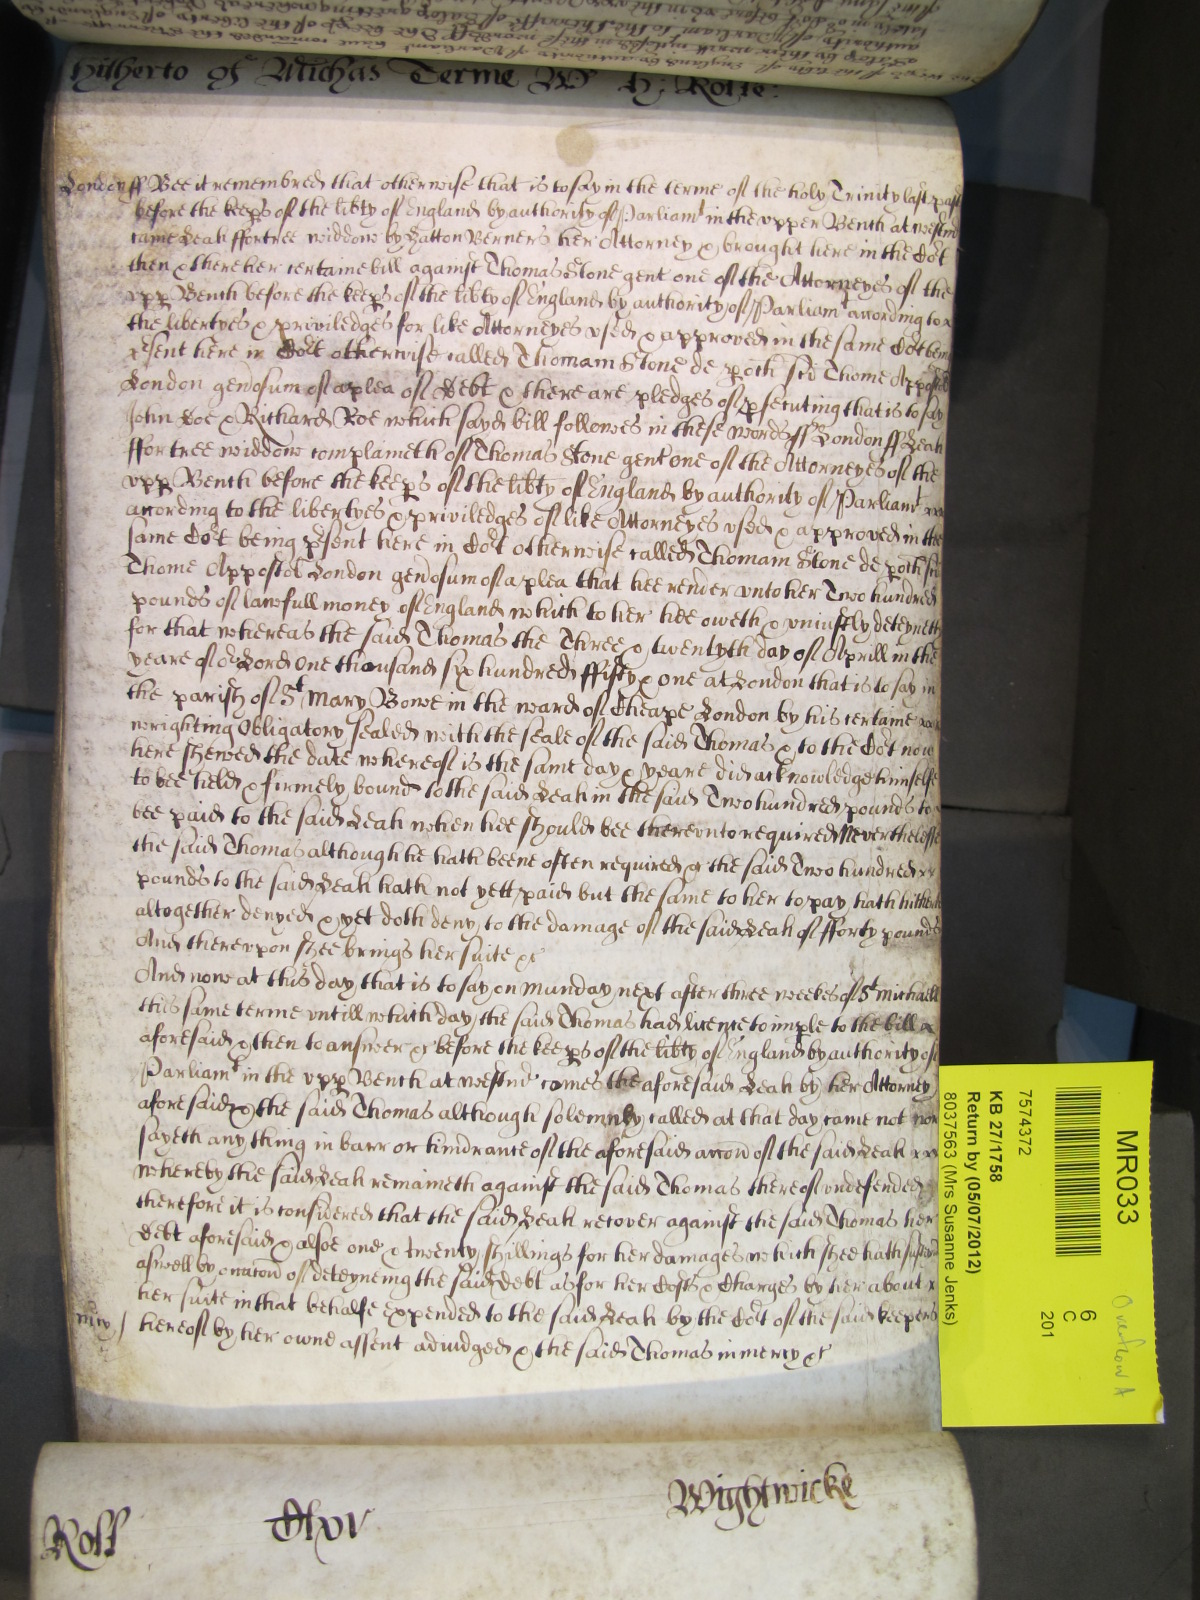 Hitherto of Michas Terme W H: Rolle:
London ff Bee it remembred that otherwise that is to say in the terme of the holy Trinity last past
before the keeps of the libty of England by authority of Parliamt in the vpper Bench at westmr
came Leah ffortree widdow by Hatton Berners her Attorney & brought here in the Cort
then & there her certaine bill against Thomas Stone gent one of the Attorneyes of the
vpp Bench before the keeps of the libty of England by authority of Parliamt according to
the libertyes & priviledges for like Attorneyes vsed & approved in the same Cort being
psent here in Cort otherwise called Thomam Stone de poch sci Thome Appostol
London genosum of a plea of Debt & there are pledges of psecuting that is to say
John Doe & Richard Roe which sayd bill followes in these words ff London ff Leah
ffortree widdow complaineth of Thomas Stone gent one of the Attorneyes of the
vpp Bench before the keeps of the libty of England by authority of Parliamt
according to the libertyes & priviledges of like Attorneyes vsed & approved in the
same Cort being psent here in Cort otherwise called Thomam Stone de poch sci
Thome Appostol London genosum of a plea that hee render vnto her Two hundred
pounds of lawfull money of England which to her hee oweth & vniustly deteyneth
for that whereas the said Thomas the Three & twentyth day of Aprill in the
yeare of or Lord One thousand six hundred ffifty & one at London that is to say in
the parish of St Mary Bowe in the ward of Cheape London by his certaine
wrighting Obligatory sealed with the seale of the said Thomas & to the Cort now
here shewed the date whereof is the same day & yeare did acknowledge himselfe
to bee held & firmely bound to the said Leah in the said Two hundred pounds to
bee paid to the said Leah when hee should bee therevnto required Neverthelesse
the said Thomas although he hath beene often required &c the said Two hundred
pounds to the said Leah hath not yett paid but the same to her to pay hath hitherto
altogether denyed & yet doth deny to the damage of the said Leah of fforty pounds
And therevpon shee brings her suite &c
And now at this day that is to say on Munday next after three weekes of St Michaell
this same terme vntill which day the said Thomas had licence to imple to the bill
aforesaid & then to answer &c before the keeps of the libty of England by authority of
Parliamt in the vpp Bench at westmr comes the aforesaid Leah by her Attorney
aforesaid & the said Thomas although solemnly called at that day came not nor
sayeth any thing in barr or hindrance of the aforesaid accon of the said Leah
whereby the said Leah remaineth against the said Thomas thereof vndefended
therefore it is considered that the said Leah recover against the said Thomas her
Debt aforesaid & alsoe one & twenty shillings for her damages which shee hath susteyned
aswell by occacon of deteyneing the said Debt as for her Costs & Charges by her about
her suite in that behalfe expended to the said Leah by the Cort of the said keepers
mcy/ hereof by her owne assent adiudged & the said Thomas in mercy &c
Roll
Clxv
Wightwicke
MR033
6
C
201
7574372
KB 27/1758
Return by (05/07/2012)
8037563 (Mrs Susanne Jenks)
Overflow A